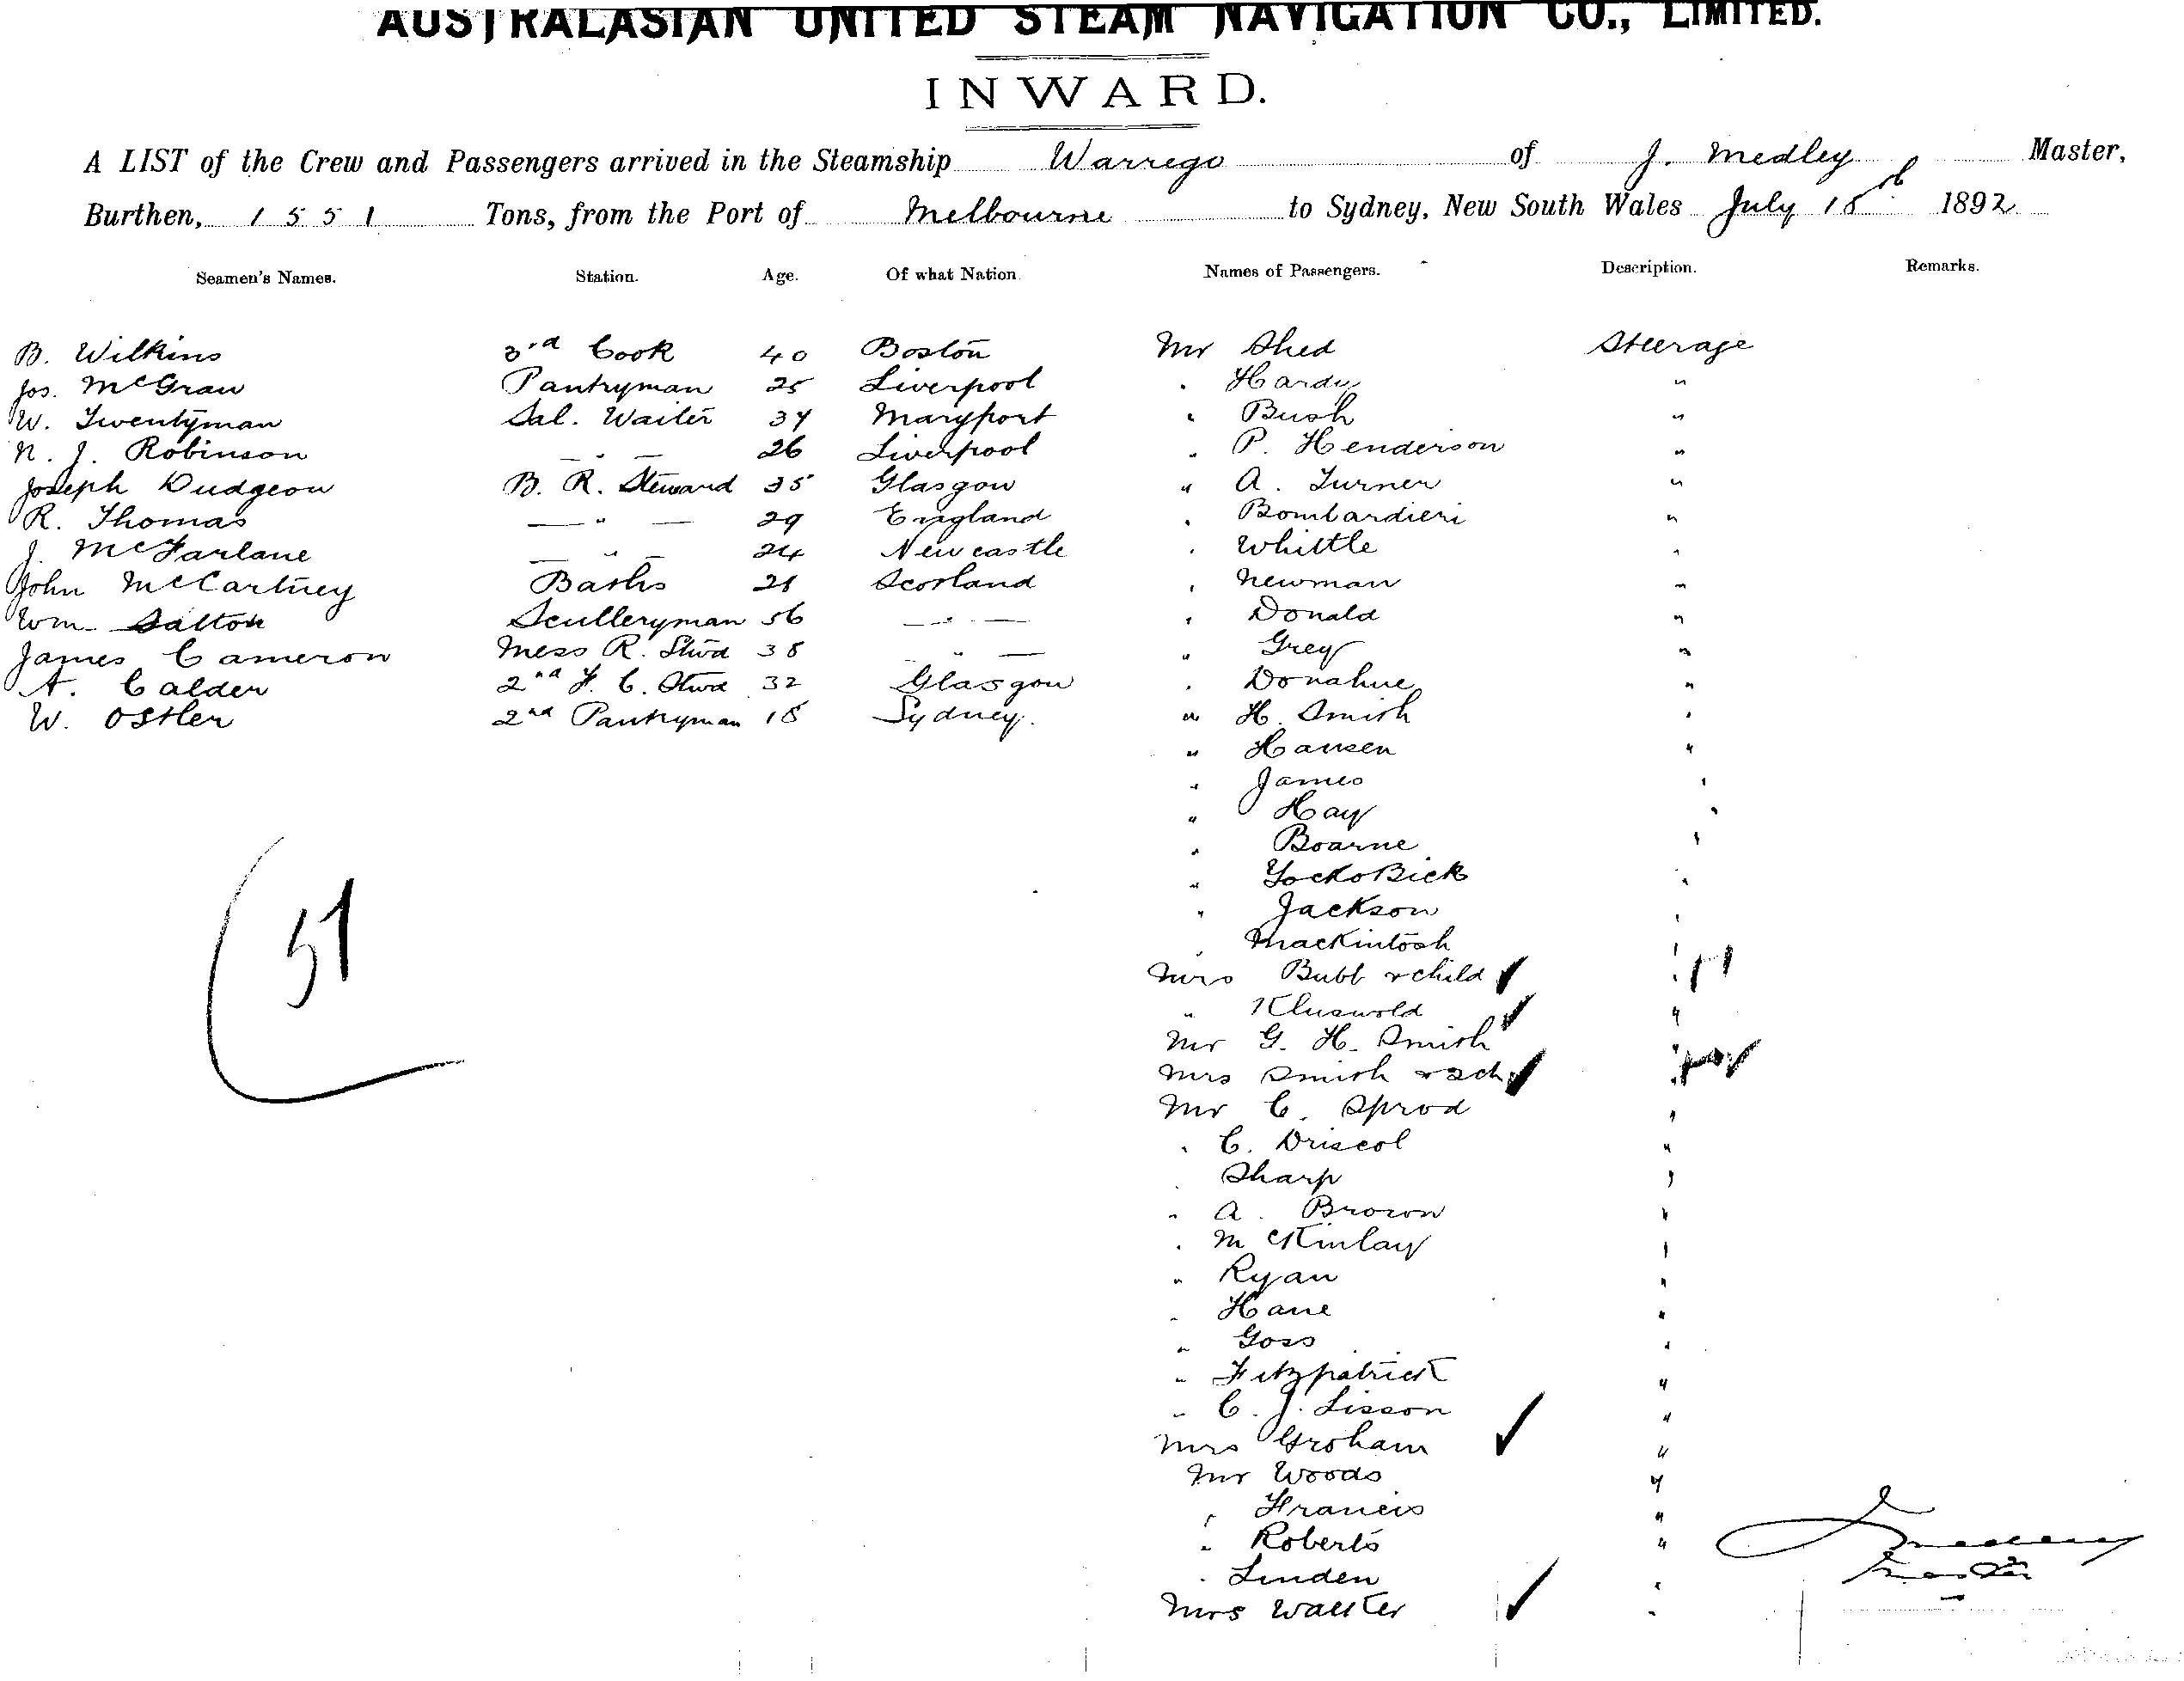 AUSTRALASIAN UNITED STEAM NAVIGATION CO., LIMITED.
INWARD.
A LIST of the Crew and Passengers arrived in the Steamship Warrego of J. Medley Master,
Burthen, 1551 Tons, from the Port of Melbourne to Sydney, New South Wales July 15th 1892
Seamen's Names. Station. Age. Of what Nation. Names of Passengers. Description. Remarks.
B. Wilkins 3rd Cook 40 Boston Mr Shed Steerage
Jos. McGraw Pantryman 25 Liverpool " Hardy "
W. Twentyman Sal. Waiter 34 Maryport " Bush "
N. J. Robinson — " — 26 Liverpool " P. Henderson "
Joseph Dudgeon B. R. Steward 35 Glasgow " A. Turner "
R. Thomas — " — 29 England " Bombardieri "
J. McFarlane — " — 24 Newcastle " Whittle "
John McCartney Baths 21 Scotland " Newman "
Wm Salton Sculleryman 56 — " — " Donald "
James Cameron Mess R. Stwd 38 " — " Grey "
A. Calder 2nd F. C. Stwd 32 Glasgow " Donahue "
W. Ostler 2nd Pantryman 18 Sydney. " H. Smith "
" Hansen "
" James "
" Hay "
" Boarne "
" YockoBick "
" Jackson "
" Mackintosh "
51
Mrs Bubb & child "
" "
Mr G. H. Smith "
Mrs Smith & 2 ch "
Mr C. Sprod "
" C. Driscol "
" Sharp "
" A. Brown "
" McKinlay "
" Ryan "
" Hane "
" Goss "
" Fitzpatrick "
" C. J. Lisson "
Mrs Groham "
Mr Woods "
" Francis "
" Roberts "
" Linden "
Mrs Walker "
Medley
Master